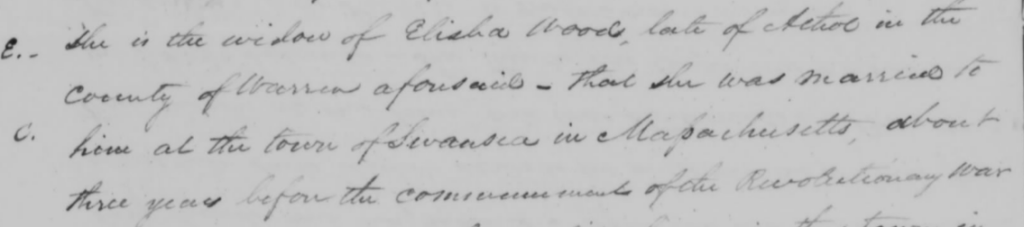 E.- She is the widow of Elisha Wood, late of Athol in the
county of Warren aforesaid - that she was married to
C. him at the town of Swansea in Massachusetts, about
three years before the commencement of the Revolutionary War